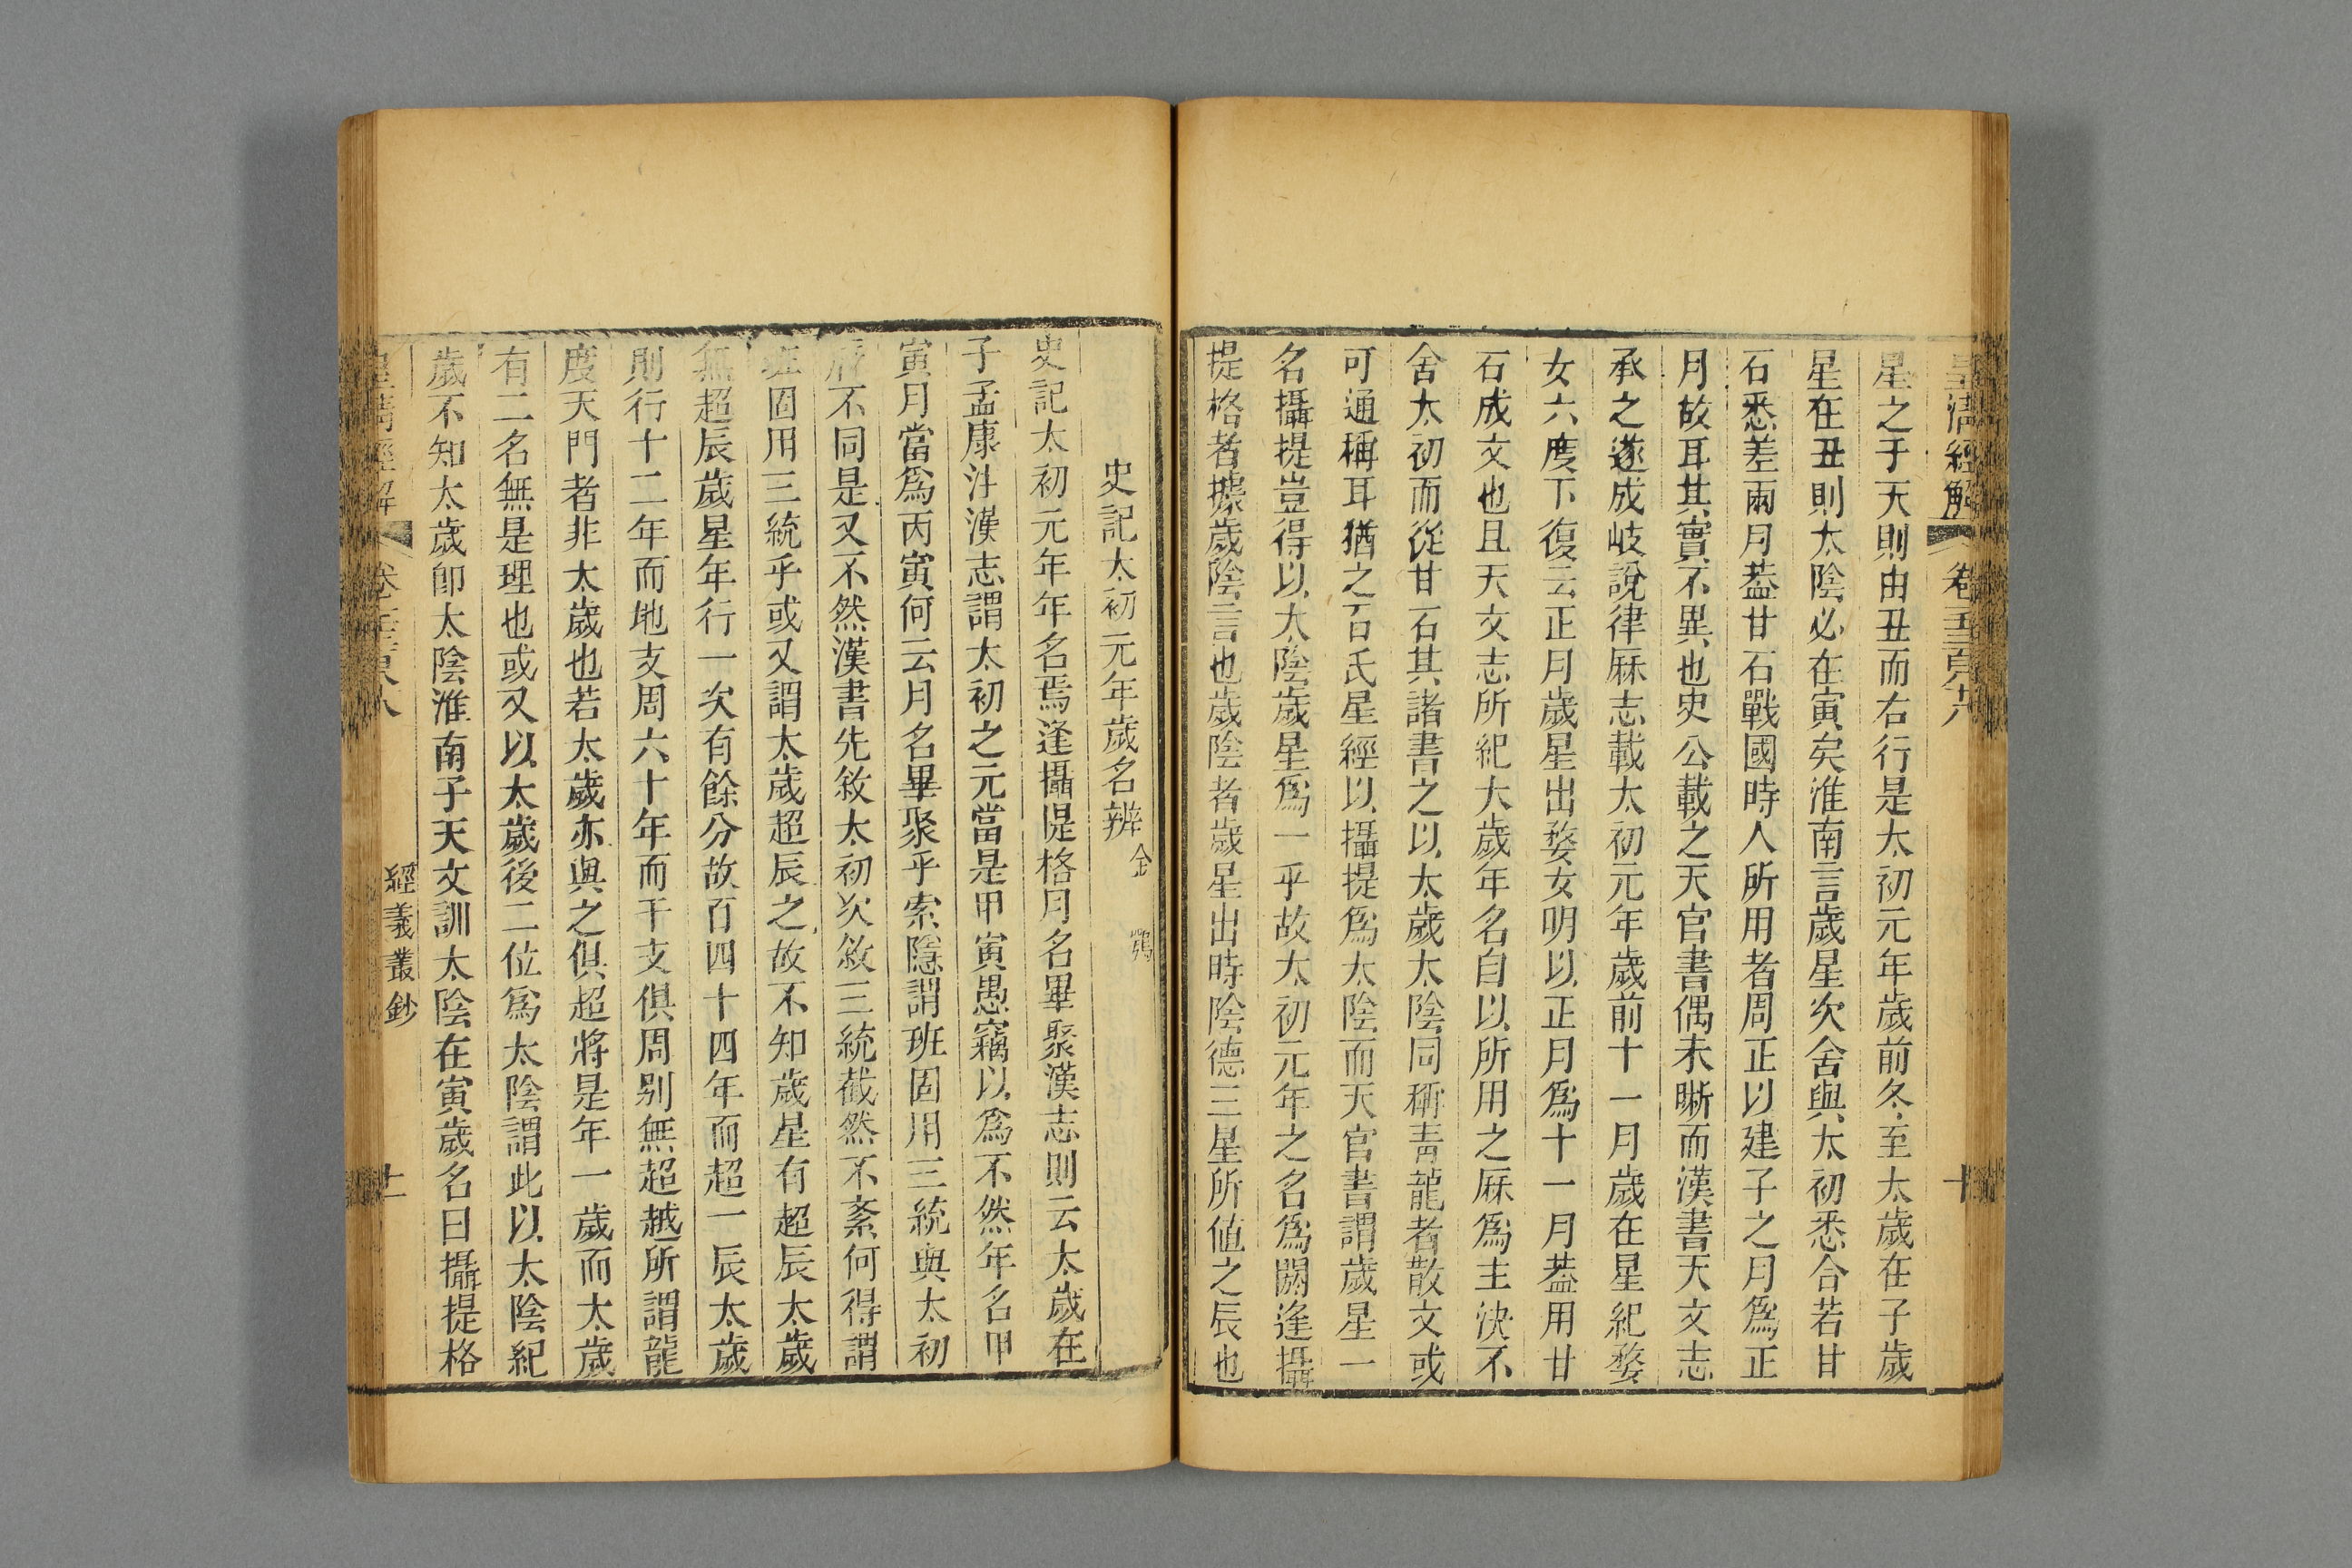 皇清經解 卷一千三百九十八 十
星之于天則由丑而右行是太初元年歲前冬至太歲在子歲
星在丑則太陰必在寅矣淮南言歲星次舍與太初悉合若甘
石悉差兩月葢甘石戰國時人所用者周正以建子之月爲正
月故耳其實不異也史公載之天官書偶未晰而漢書天文志
承之遂成岐說律厤志載太初元年歲前十一月歲在星紀婺
女六度下復云正月歲星出婺女明以正月爲十一月葢用甘
石成文也且天文志所紀太歲年名自以所用之厤爲主決不
舍太初而從甘石其諸書之以太歲太陰同稱青龍者散文或
可通稱耳猶之石氏星經以攝提爲太陰而天官書謂歲星一
名攝提豈得以太陰歲星爲一乎故太初元年之名爲閼逢攝
提格者據歲陰言也歲陰者歲星出時陰德三星所値之辰也
史記太初元年歲名辨 金鶚
史記太初元年年名焉逢攝提格月名畢聚漢志則云太歲在
子孟康注漢志謂太初之元當是甲寅愚竊以爲不然年名甲
寅月當爲丙寅何云月名畢聚乎索隱謂班固用三統與太初
厤不同是又不然漢書先敘太初次敘三統截然不紊何得謂
班固用三統乎或又謂太歲超辰之故不知歲星有超辰太歲
無超辰歲星年行一次有餘分故百四十四年而超一辰太歲
則行十二年而地支周六十年而干支俱周別無超越所謂龍
度天門者非太歲也若太歲亦與之俱超將是年一歲而太歲
有二名無是理也或又以太歲後二位爲太陰謂此以太陰紀
歲不知太歲卽太陰淮南子天文訓太陰在寅歲名曰攝提格
皇清經解 經義叢鈔 十一